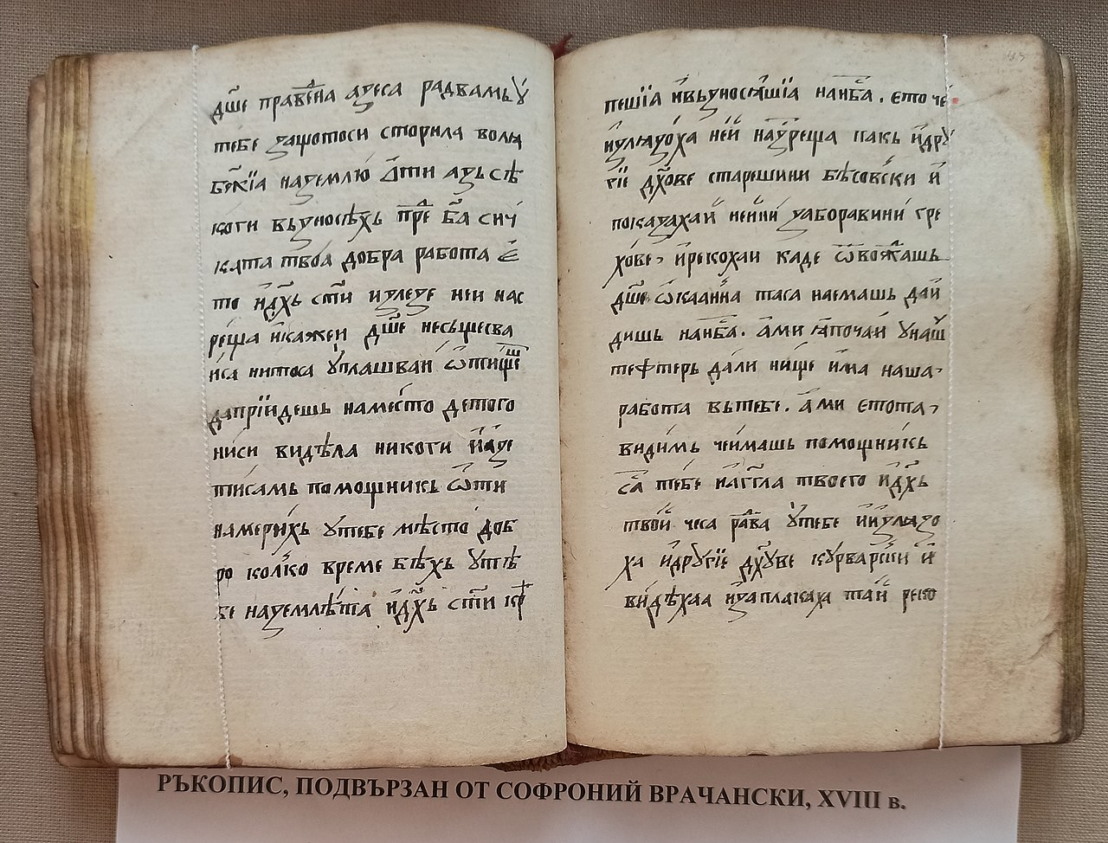 дш҃е праве́на азеса радвамьꙋ
тебе защотоси сторила волѧ
бж҃їа наземлю Д҃ти азь сѣ
коги възносѣхь пре бг҃а сич
ката твоа добра работа е҆
то и҆дх҃ь ст҃и излезе неи нас
реща и҆кажеи дш҃е несъщесва
иса нитоса ꙋ҆плашваи ѿтище
даприїдешь наместо детого
ниси видѣла никоги и҆азе
тисамь помощникь ѿти
намерихь ꙋ҆тебе мѣсто доб
ро колко време бѣхь ꙋтѣ
бе наземлѣта и҆дх҃ь ст҃и
пешїа и҆възносѧщїа наиба. ето че
излязоха ней назреща пакь и҆дрꙋ
гїе дх҃ове старешини бѣсовски и҆
показахаи нейни заборавини гре
хове, и҆рекохаи каде ѿвождашь
дш҃е ѡ҆каанна таса наемашь даи
дишь нанба. А҆ми започаи ꙋнаш
тефтерь дали нище и҆ма наша
работа вътебе. а҆ми етота
видимь чеимашь помощникь
са тебе наггла твоего и҆дх҃ь
твои чеса рава ꙋ҆тебе и҆излязо
ха и҆дрꙋгїе дх҃ꙋве кꙋрварски и҆
видѣхаа и҆заплакаха таи реко
РЪКОПИС, ПОДВЪРЗАН ОТ СОФРОНИЙ ВРАЧАНСКИ, XVIII в.